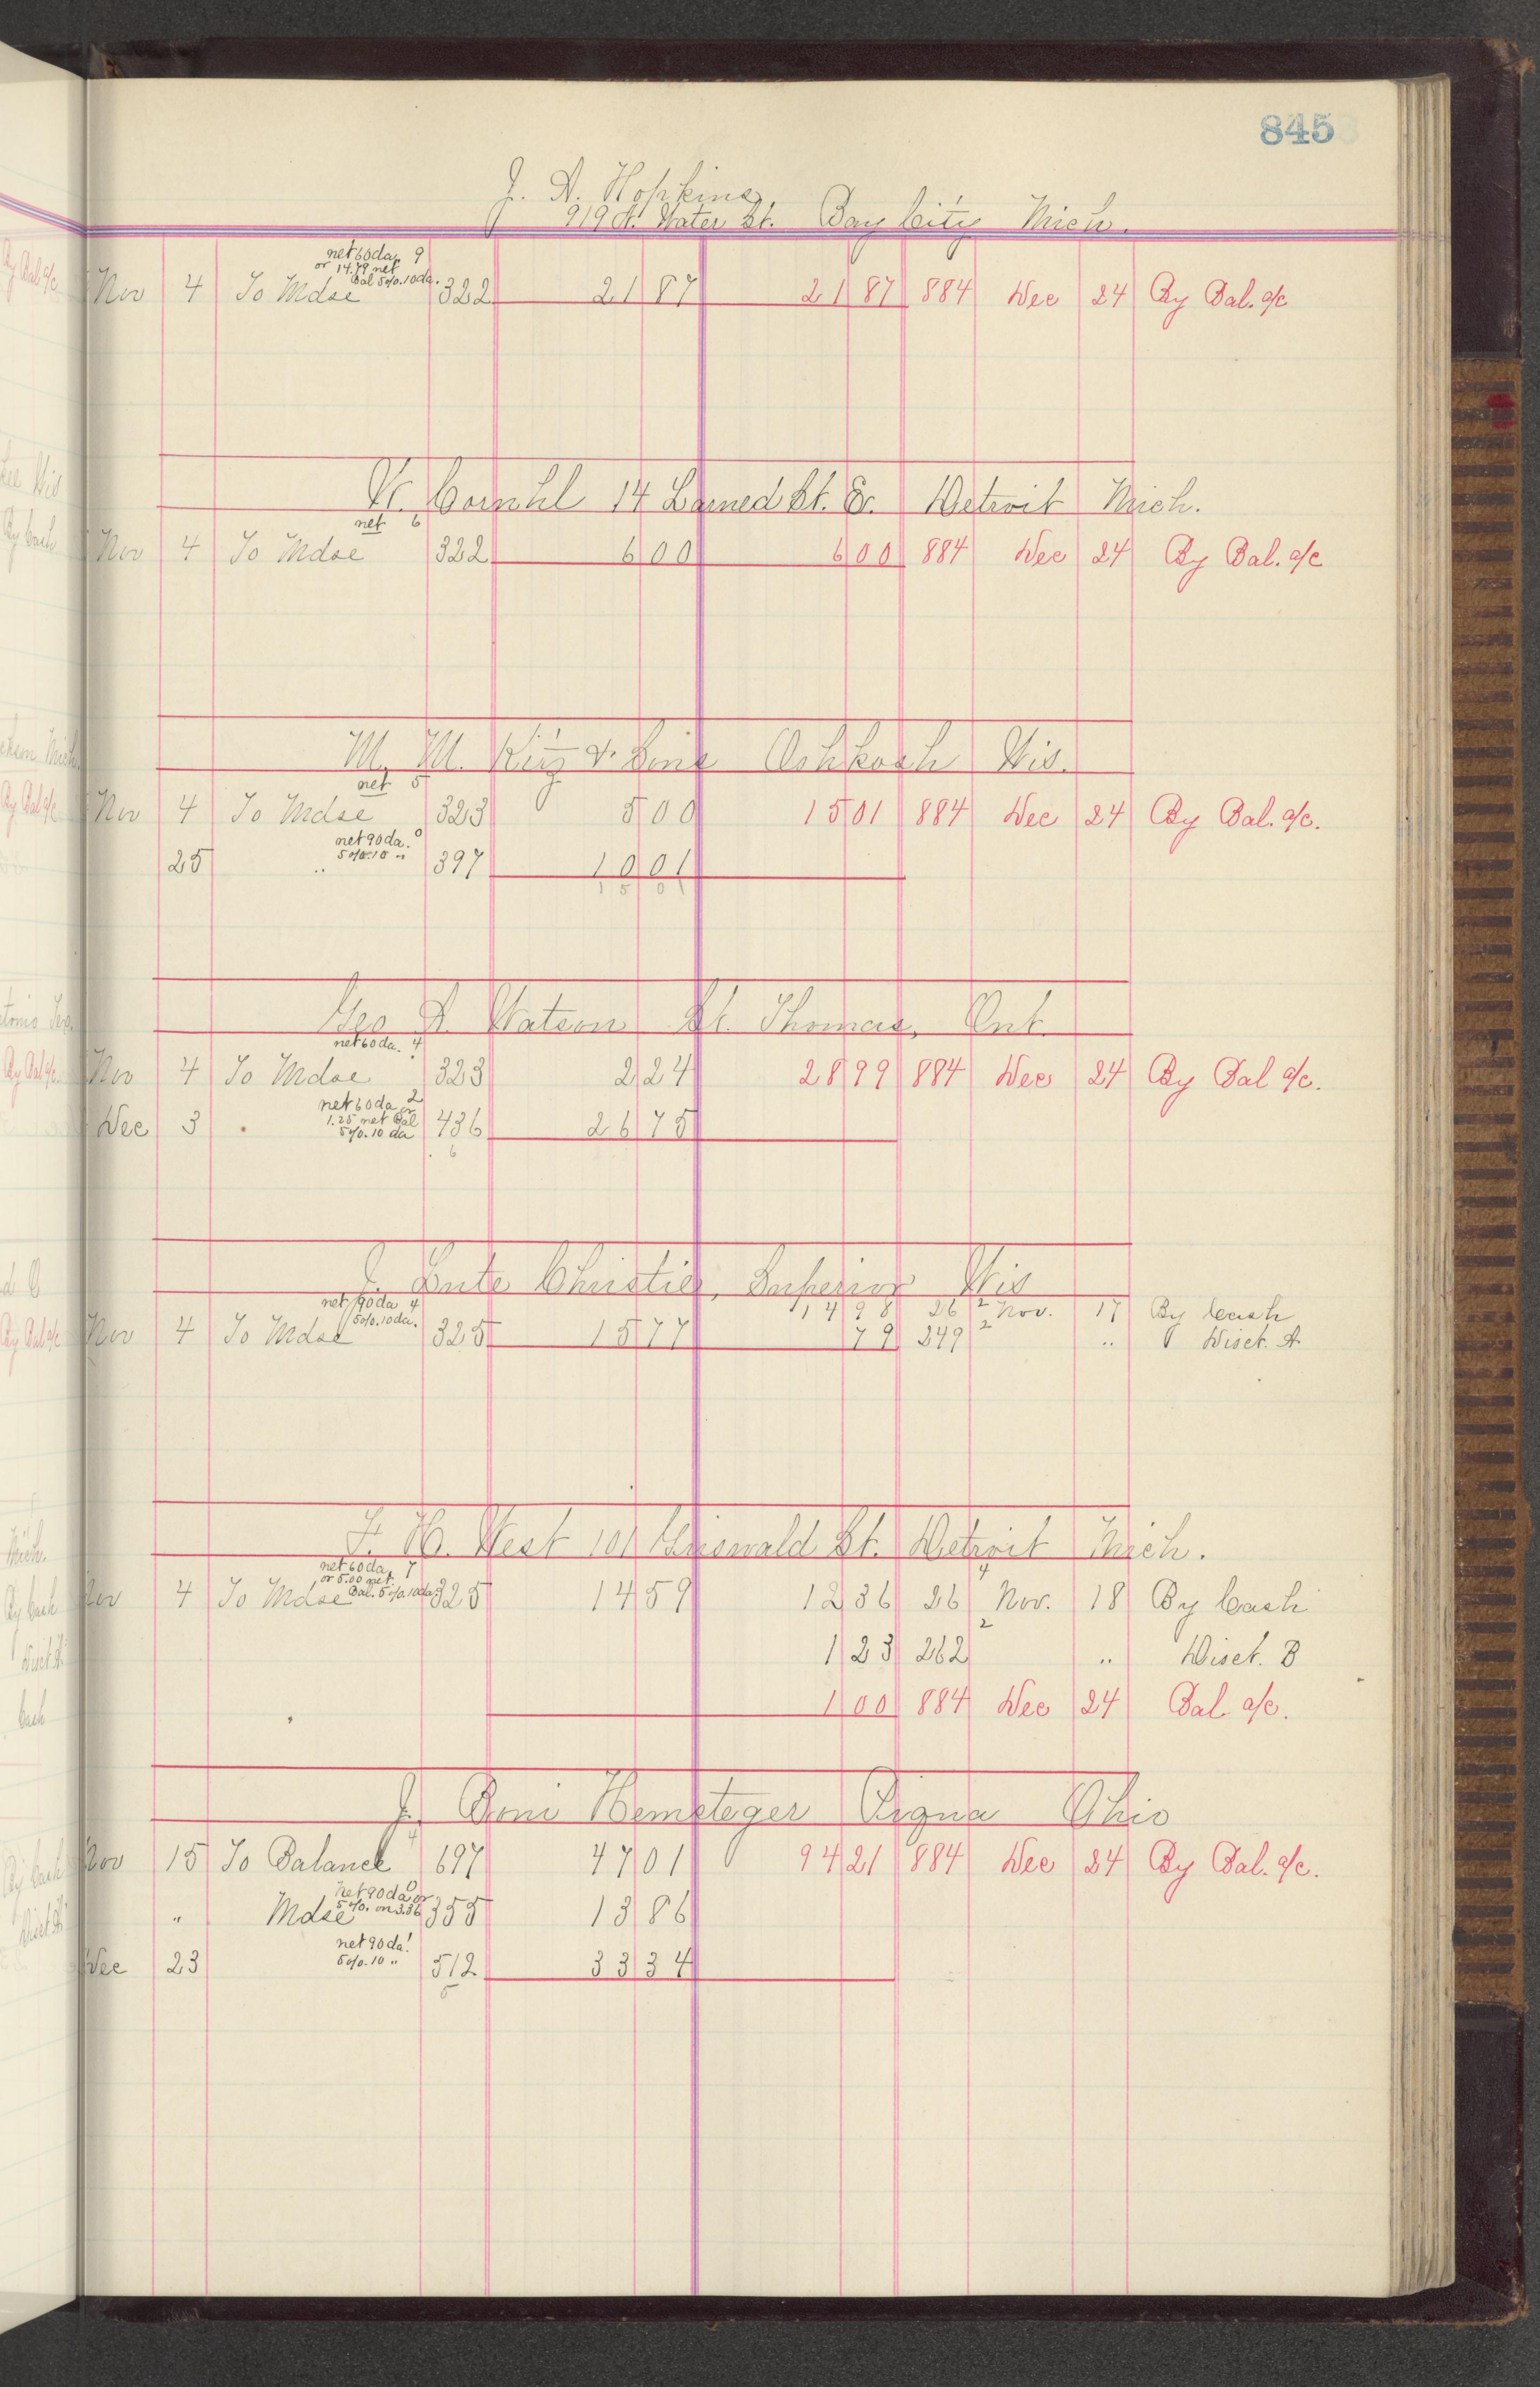 845
J. A. Hopkins
919 N. Water St. Bay City Mich.
net 60 da. 9
or 14.79 net
Bal 5%.10 da.
Nov 4 To Mdse 322 21 87 21 87 884 Dec 24 By Bal. a/c
W. Cornhl 14 Larned St. E. Detroit Mich.
net 6
Nov 4 To Mdse 322 6 00 6 00 884 Dec 24 By Bal. a/c
M. M. & Sons Oshkosh Wis.
net 5
Nov 4 To Mdse 323 5 00 15 01 884 Dec 24 By Bal. a/c.
net 90 da. 0
5%.10 "
25 " 397 10 01
15 01
Geo A Watson St. Thomas, Ont.
net 60 da. 4
Nov 4 To Mdse 323 2 24 28 99 884 Dec 24 By Bal a/c.
net 60 da or 2
1.25 net Bal
5%.10 da
Dec 3 436 26 75
6
J. Lute Christie, Superior Wis
net 90 da 4 14 98 26 2 Nov. 17 By Cash
5%.10 da.
Nov 4 To Mdse 325 15 77 79 249 2 " Disct. A
F. H. West 101 Griswald St. Detroit Mich.
net 60 da. 7
or 5.00 net
Bal. 5%.10 da.
Nov 4 To Mdse 325 14 59 12 36 26 4 Nov. 18 By Cash
1 23 262 2 " Disct. B
1 00 884 Dec 24 Bal a/c.
J. Boni Hemsteger Piqua Ohio
Nov 15 To Balance 697 47 01 94 21 884 Dec 24 By Bal. a/c.
net 90 da or 0
5%. on 3.36
" Mdse 355 13 86
net 90 da. 1
5%.10 "
Dec 23 512 33 34
5